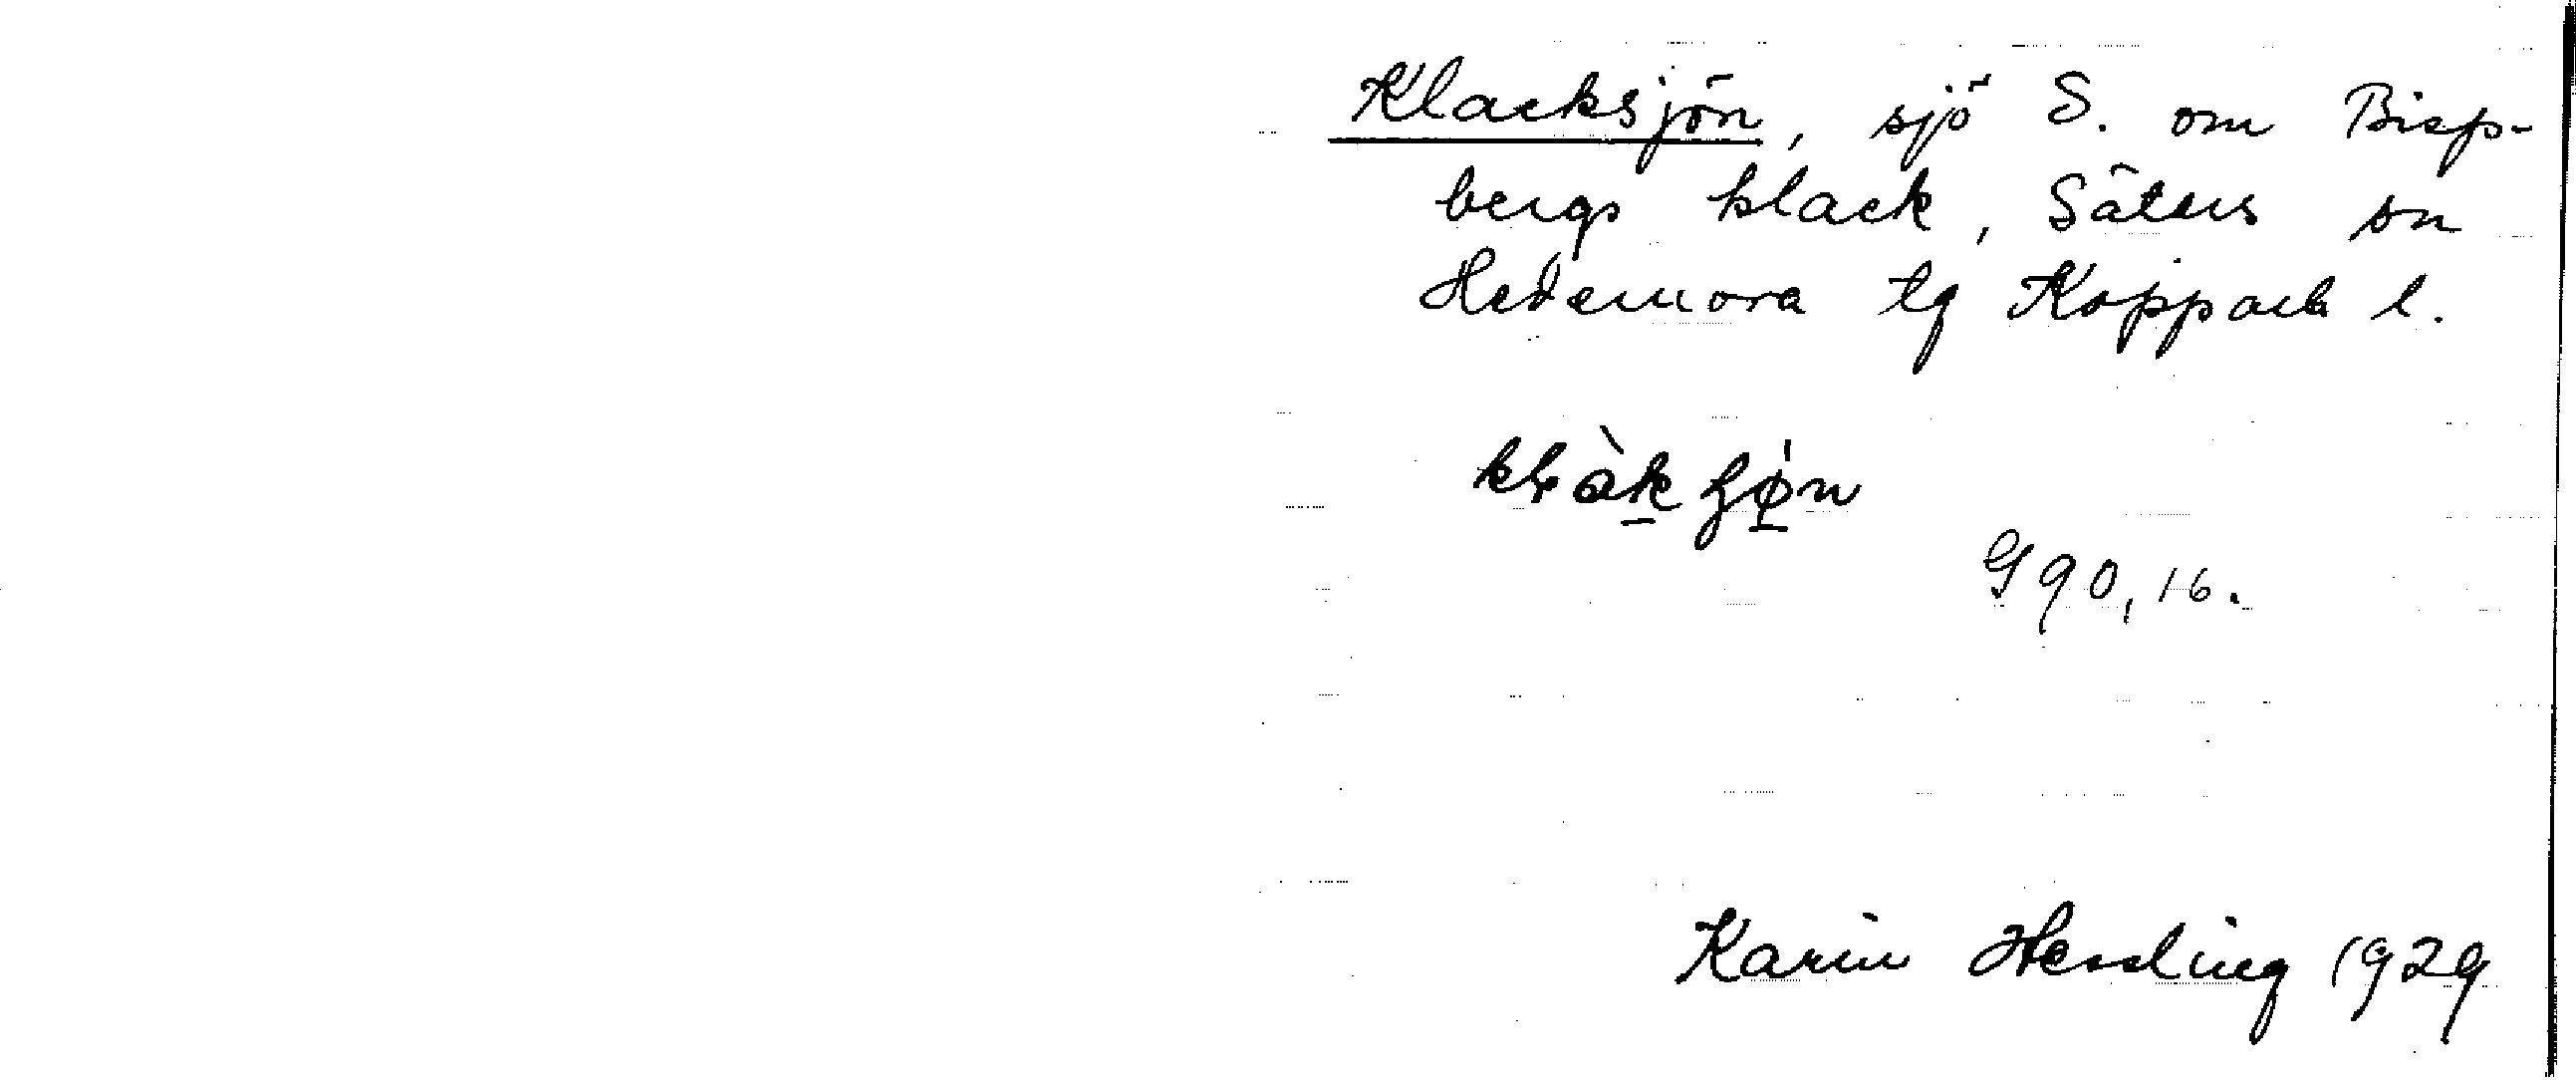 Klacksjön, sjö S. om Bisp-
bergs klack, Säters sn
Hedemora tg Kopparb l.
G 90, 16.
Karin Hessling 1929